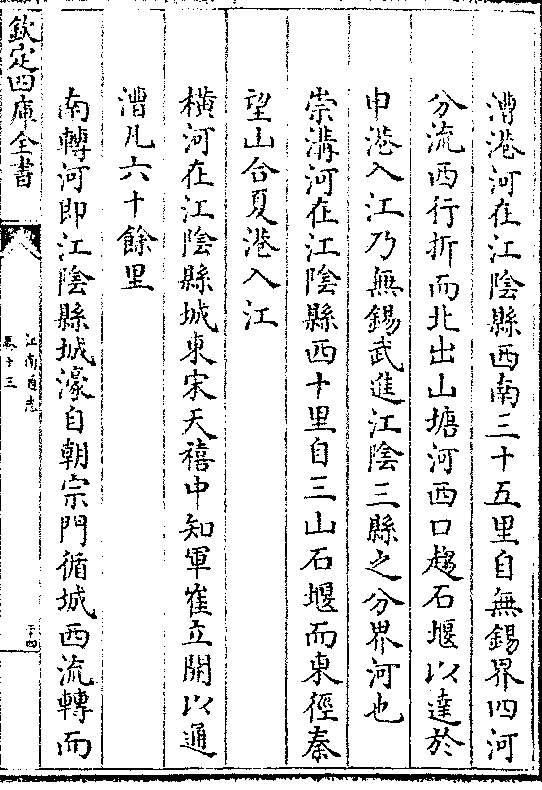 漕港河在江陰縣西南三十五里自無錫界四河
分流西行折而北出山塘河西口趨石堰以達於
申港入江乃無錫武進江陰三縣之分界河也
崇溝河在江陰縣西十里自三山石堰而東徑秦
望山合夏港入江
橫河在江陰縣城東宋天禧中知軍崔立開以通
漕凡六十餘里
南轉河即江陰縣城濠自朝宗門循城西流轉而
欽定四庫全書
江南通志
卷十三
二十四